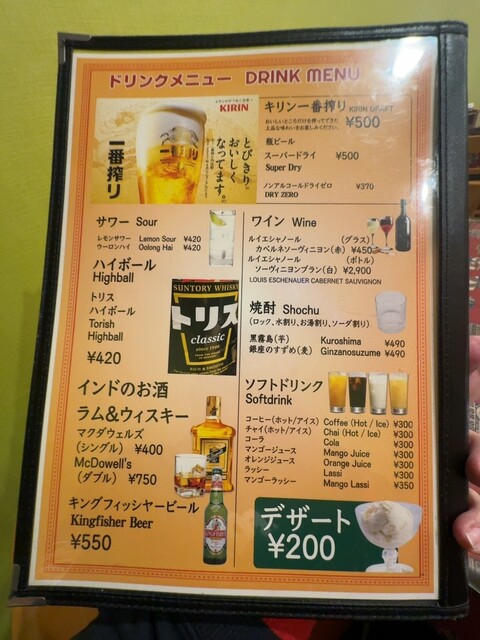 ドリンクメニュー DRINK MENU
KIRIN
とびきり。
おいしく
なってます。
一番搾り
キリン一番搾り KIRIN DRAFT
おいしいところだけを搾ってできた
上品な味わいをお楽しみください。
¥500
瓶ビール
スーパードライ ¥500
Super Dry
ノンアルコールドライゼロ ¥370
DRY ZERO
サワー Sour
レモンサワー Lemon Sour ¥420
ウーロンハイ Oolong Hai ¥420
ハイボール
Highball
トリス
ハイボール
Torish
Highball
¥420
SUNTORY WHISKY
トリス
classic
since 1946
インドのお酒
ラム&ウィスキー
マクダウェルズ
(シングル) ¥400
McDowell's
(ダブル) ¥750
キングフィッシャービール
Kingfisher Beer
¥550
ワイン Wine
ルイエシャノール (グラス)
カベルネソーヴィニヨン(赤) ¥450
ルイエシャノール (ボトル)
ソーヴィニヨンブラン(白) ¥2,900
LOUIS ESCHENAUER CABERNET SAUVIGNON
焼酎 Shochu
(ロック、水割り、お湯割り、ソーダ割り)
黒霧島(芋) Kuroshima ¥490
銀座のすずめ(麦) Ginzanosuzume ¥490
ソフトドリンク
Softdrink
コーヒー(ホット/アイス) Coffee (Hot / Ice) ¥300
チャイ(ホット/アイス) Chai (Hot / Ice) ¥300
コーラ Cola ¥300
マンゴージュース Mango Juice ¥300
オレンジジュース Orange Juice ¥300
ラッシー Lassi ¥300
マンゴーラッシー Mango Lassi ¥350
デザート
¥200